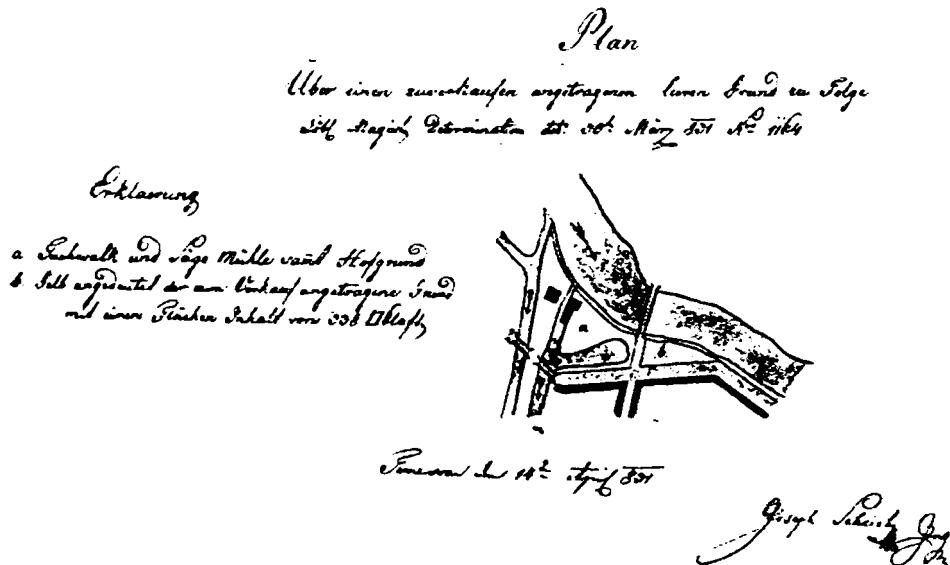 Plan
Über einen zuverkaufen angetragenen leeren Grund zu Folge
Löbl Magist Determination dto 30t März 831 No 1164
Erklaerung
a Tuchwalk und Säge Mühle samt Hofgrund
b. Gelb angedeutet der zum Verkauf angetragene Grund
mit einen Flächen Inhalt von 338 □Klaft
a
b
Temesvar den 14t April 831
Joseph